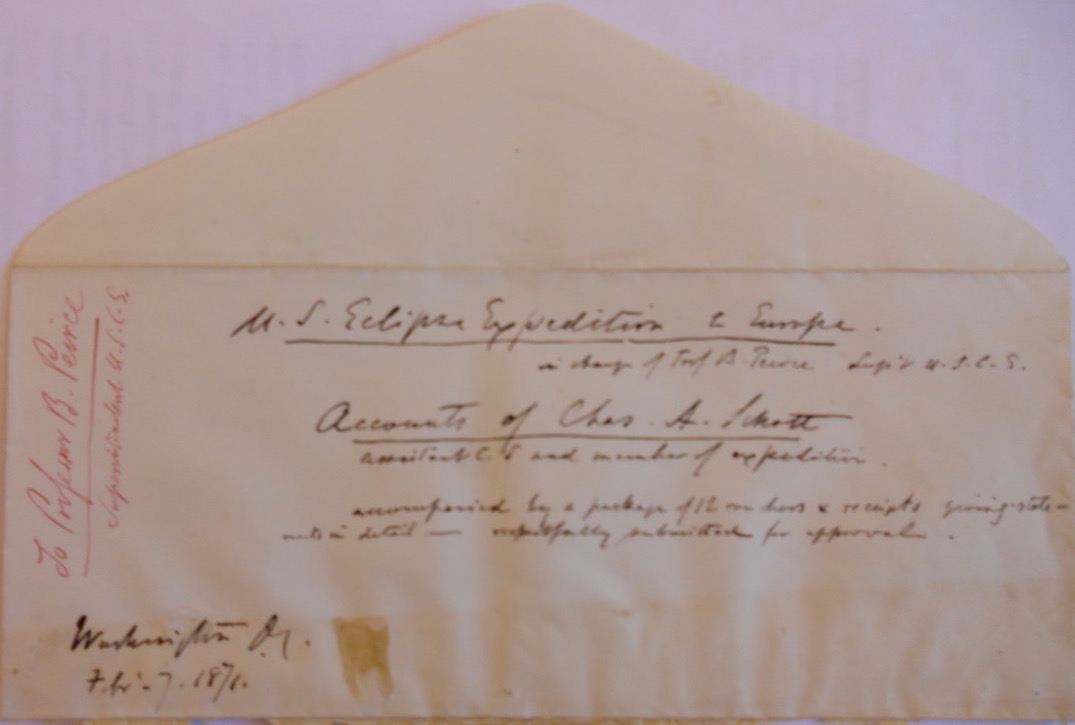 U. S. Eclipse Expedition to Europe.
in charge of Prof B. Peirce Sup't U. S. C. S.
Accounts of Chas. A. Schott
assistant C. S and member of expedition.
accompanied by a package of 12 vouchers & receipts giving state-
ments in detail — respectfully submitted for approval.
Washington D.C.
Feb. 7. 1871.
To Professor B. Peirce
Superintendent U. S. C. S.